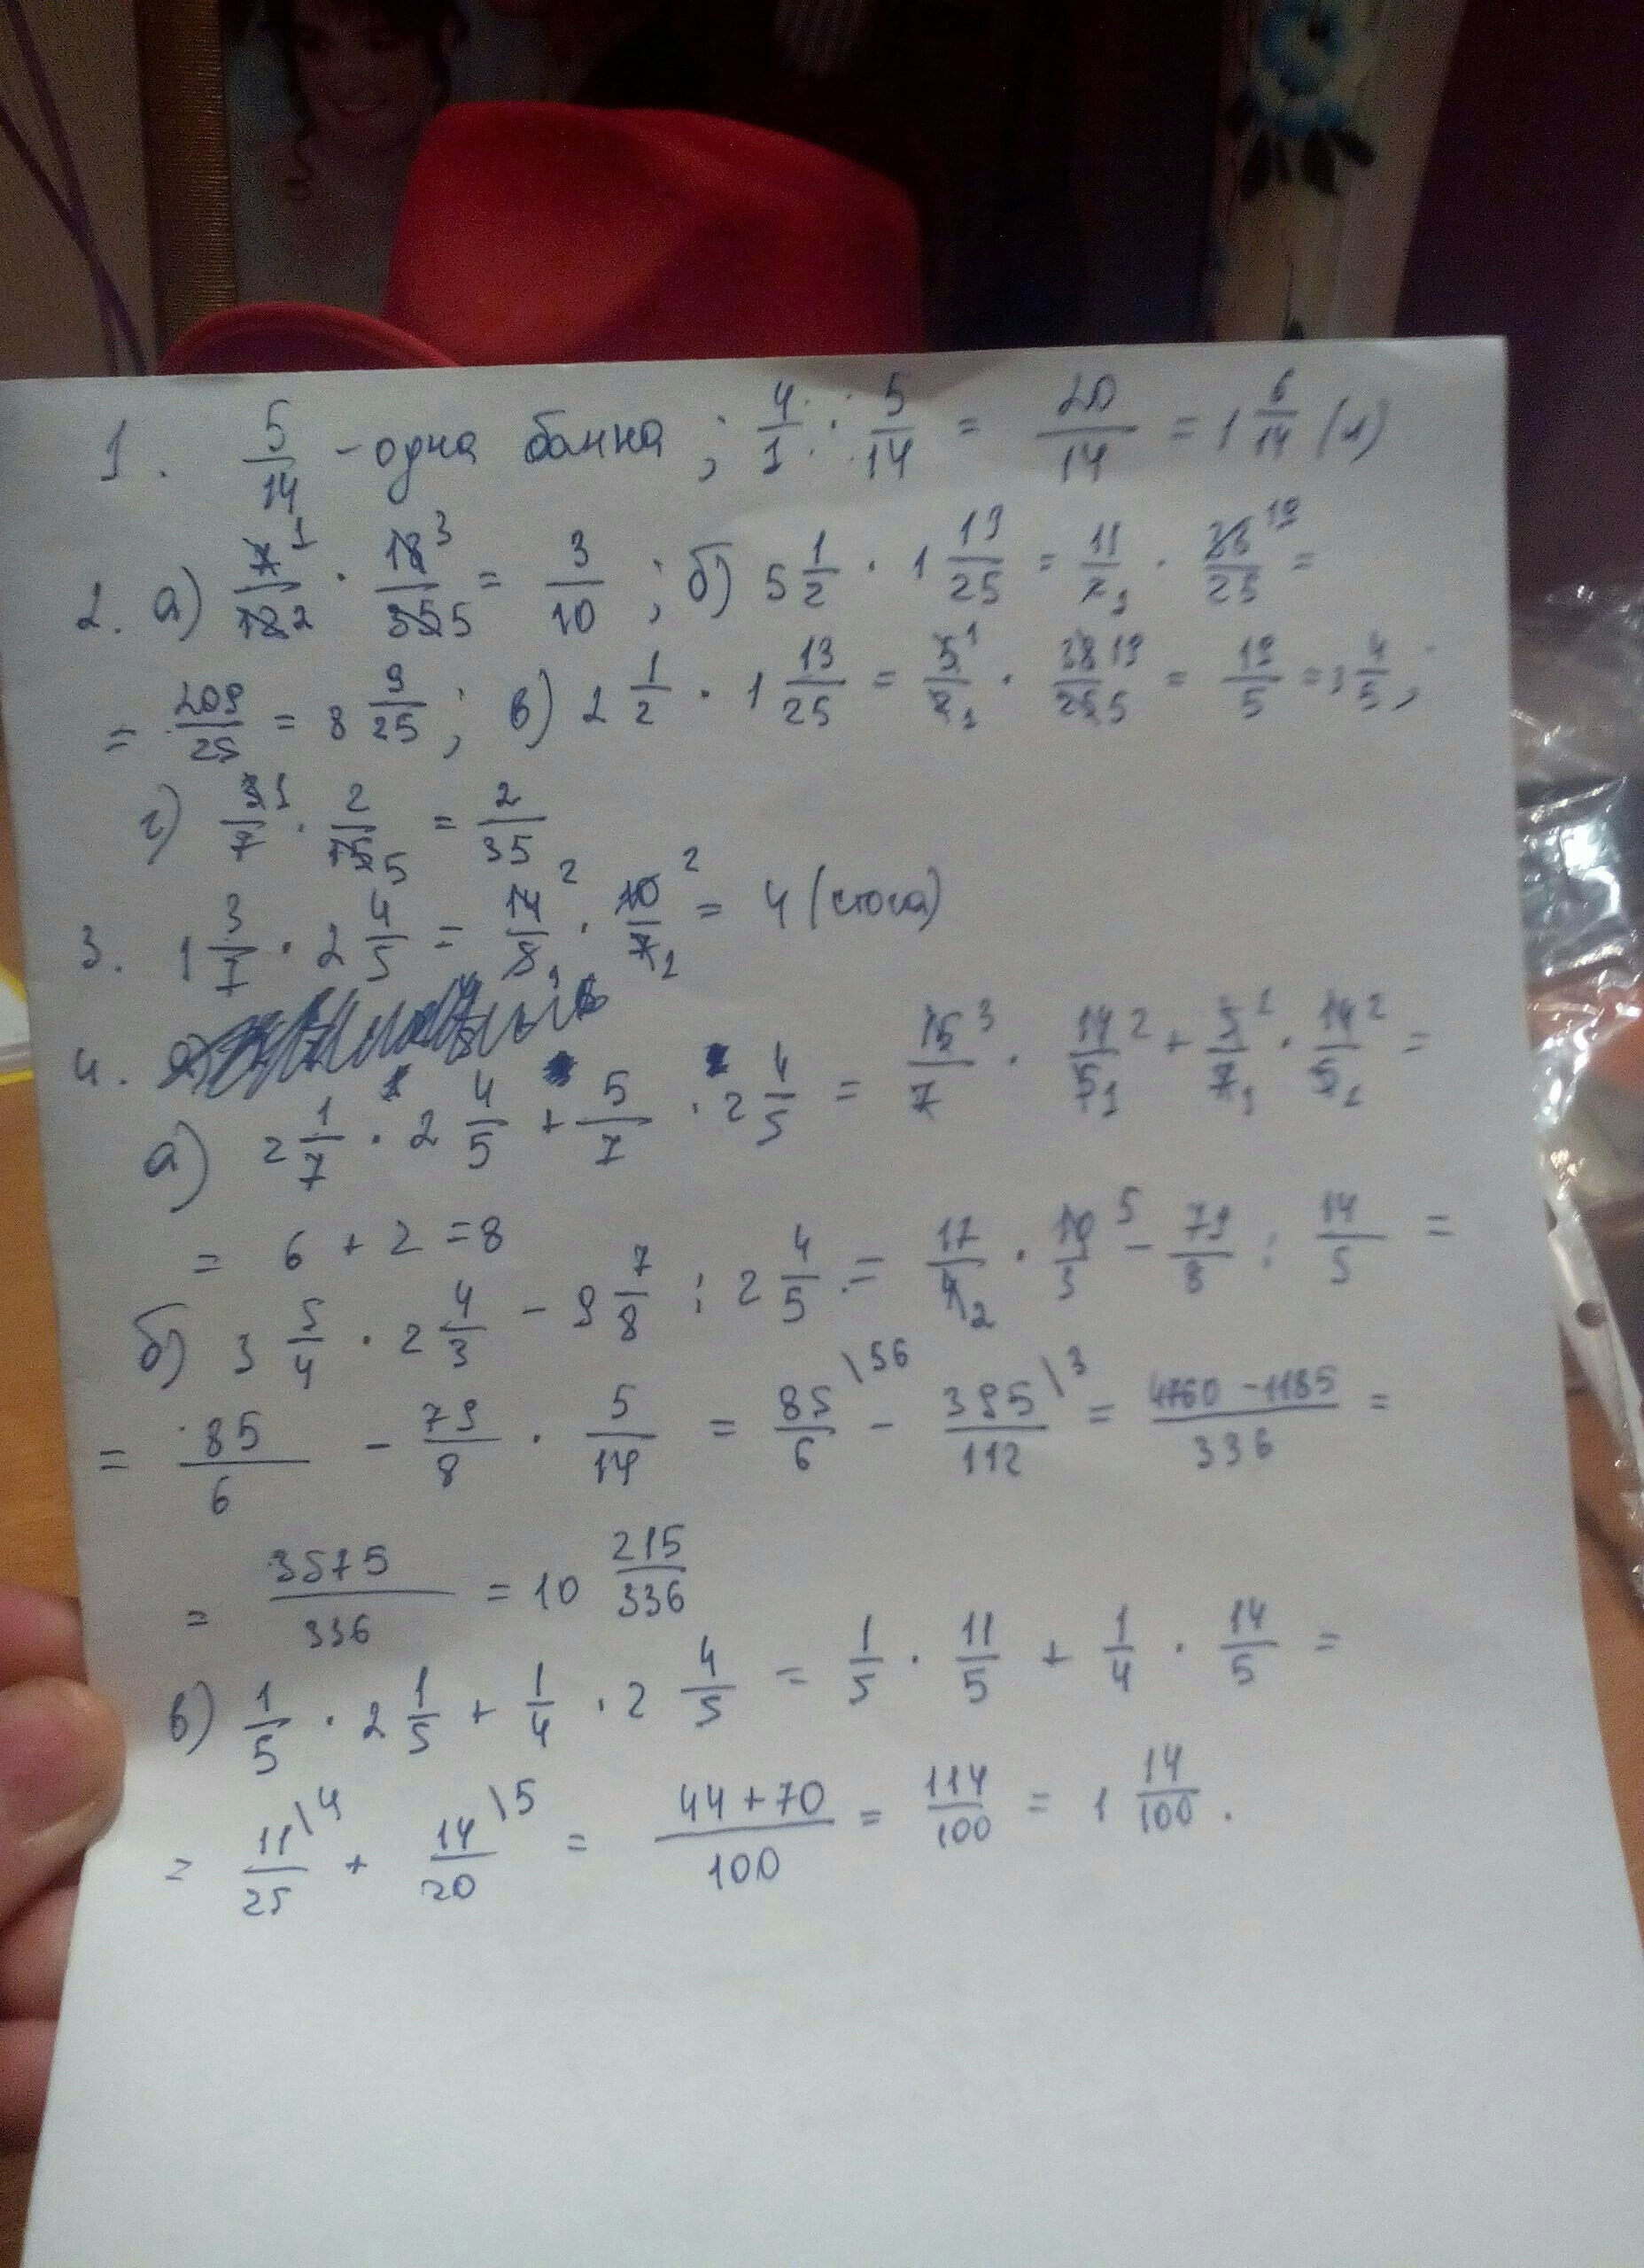 1. 5/14 - одна банка ; 4/1 · 5/14 = 20/14 = 1 6/14 (л)
2. а) 7¹/12 2 · 18³/35 5 = 3/10 ; б) 5 1/2 · 1 13/25 = 11/2 1 · 38¹⁹/25 =
= 209/25 = 8 9/25 ; в) 2 1/2 · 1 13/25 = 5¹/2 1 · 38 19/25 5 = 19/5 = 3 4/5 ;
г) 3 1/7 · 2/15 5 = 2/35
3. 1 3/7 · 2 4/5 = 14²/5 1 · 10²/7 1 = 4 (стога)
4.
а) 2 1/7 · 2 4/5 + 5/7 · 2 4/5 = 15³/7 · 14²/5 1 + 5¹/7 1 · 14²/5 1 =
= 6 + 2 = 8
б) 3 5/4 · 2 4/3 - 9 7/8 : 2 4/5 = 17/4 2 · 10⁵/3 - 79/8 : 14/5 =
= 85/6 - 79/8 · 5/14 = 85/6 \56 - 395/112 \3 = 4760 - 1185/336 =
= 3575/336 = 10 215/336
в) 1/5 · 2 1/5 + 1/4 · 2 4/5 = 1/5 · 11/5 + 1/4 · 14/5 =
= 11/25 \4 + 14/20 \5 = 44 + 70/100 = 114/100 = 1 14/100 .